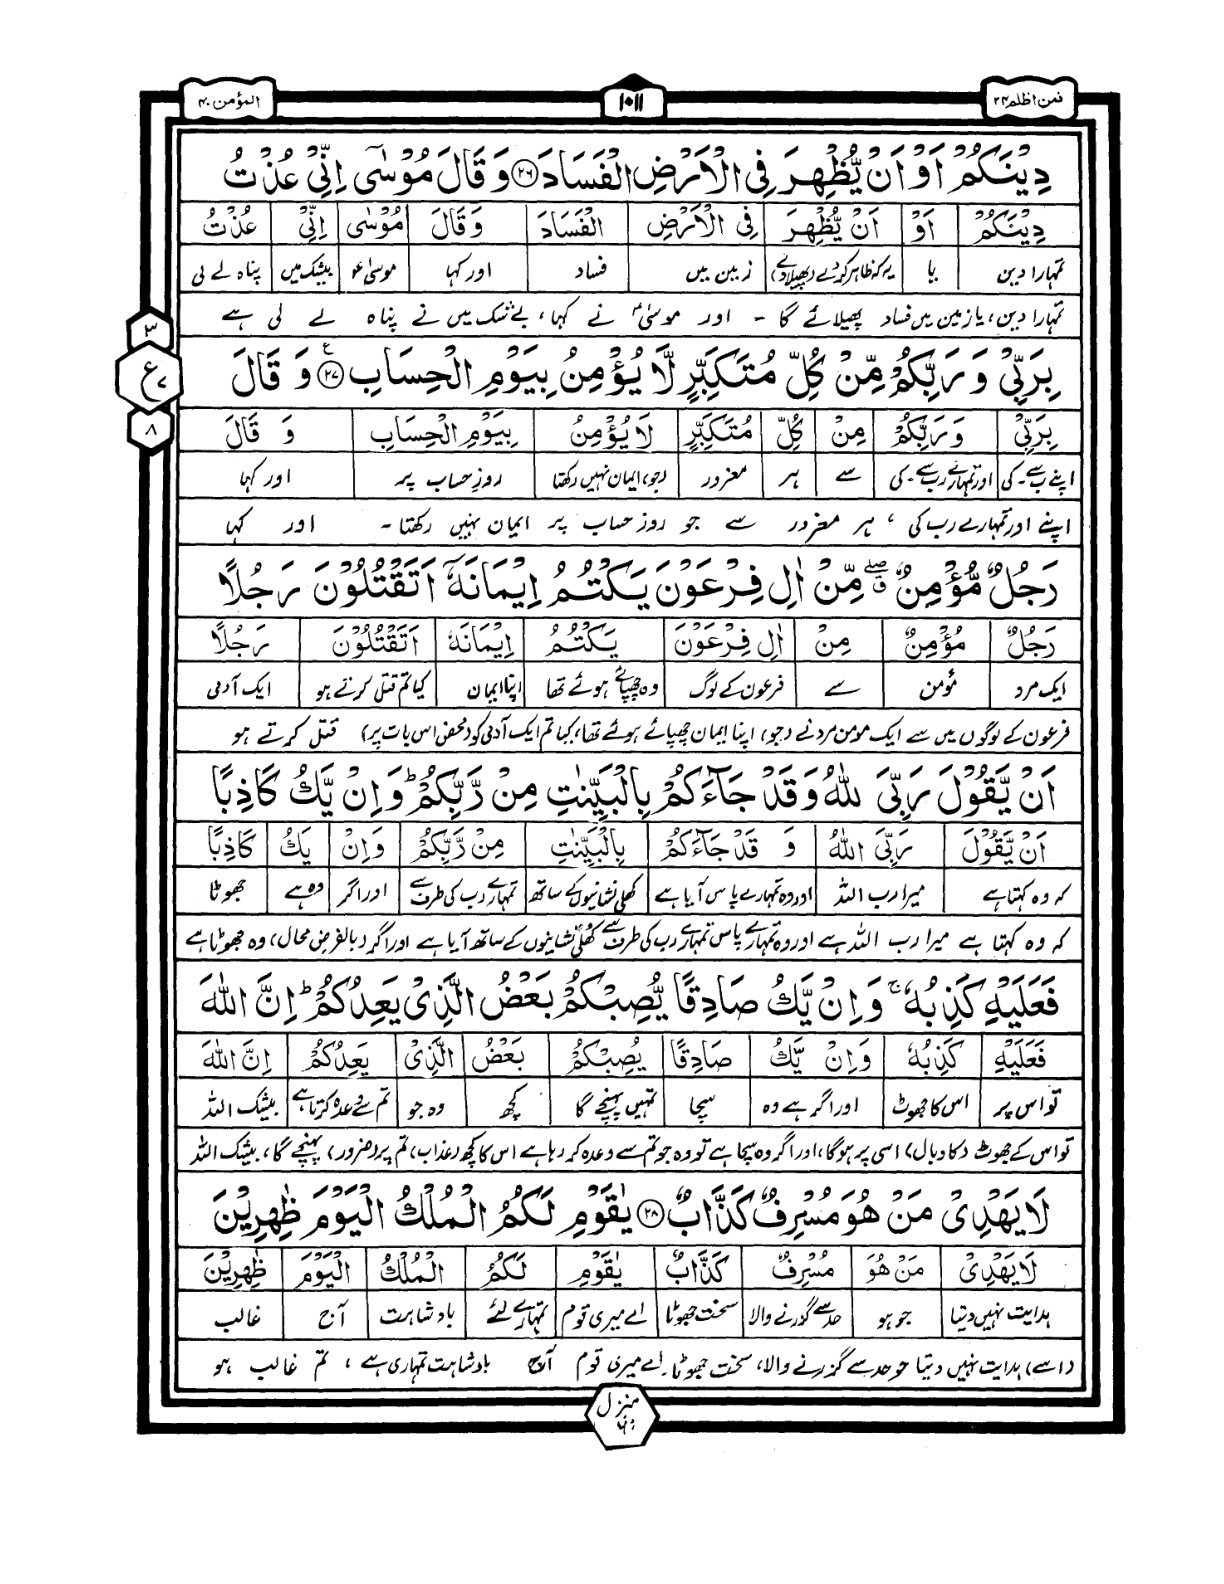 فمن اظلم ۲۴
۱۰۱۱
المؤمن ۴۰
دِيْنَكُمْ اَوْ اَنْ يُّظْهِرَ فِى الْاَرْضِ الْفَسَادَ ۲۶ وَ قَالَ مُوْسٰٓى اِنِّىْ عُذْتُ
دِيْنَكُمْ اَوْ اَنْ يُّظْهِرَ فِى الْاَرْضِ الْفَسَادَ وَ قَالَ مُوْسٰى اِنِّىْ عُذْتُ
تمہارا دین یا یہ کہ ظاہر کردے (پھیلادے) زمین میں فساد اور کہا موسیٰؑ بیشک میں پناہ لے لی
تمہارا دین، یا زمین میں فساد پھیلائے گا ۔ اور موسیٰؑ نے کہا، بے شک میں نے پناہ لے لی ہے
۳
ع ۷
۸
بِرَبِّىْ وَ رَبِّكُمْ مِّنْ كُلِّ مُتَكَبِّرٍ لَّا يُؤْمِنُ بِيَوْمِ الْحِسَابِ ۲۷ ع وَ قَالَ
بِرَبِّىْ وَ رَبِّكُمْ مِنْ كُلِّ مُتَكَبِّرٍ لَا يُؤْمِنُ بِيَوْمِ الْحِسَابِ وَ قَالَ
اپنے رب سے۔کی اور تمہارے رب سے۔کی سے ہر مغرور (جو) ایمان نہیں رکھتا روزِ حساب پر اور کہا
اپنے اور تمہارے رب کی ، ہر مغرور سے جو روز حساب پر ایمان نہیں رکھتا ۔ اور کہا
رَجُلٌ مُّؤْمِنٌ ۖق مِّنْ اٰلِ فِرْعَوْنَ يَكْتُمُ اِيْمَانَهٗٓ اَتَقْتُلُوْنَ رَجُلًا
رَجُلٌ مُؤْمِنٌ مِنْ اٰلِ فِرْعَوْنَ يَكْتُمُ اِيْمَانَهٗ اَتَقْتُلُوْنَ رَجُلًا
ایک مرد مؤمن سے فرعون کے لوگ وہ چھپائے ہوئے تھا اپنا ایمان کیا تم قتل کرتے ہو ایک آدمی
فرعون کے لوگوں میں سے ایک مومن مرد نے (جو) اپنا ایمان چھپائے ہوئے تھا، کیا تم ایک آدمی کو (محض اس بات پر) قتل کرتے ہو
اَنْ يَّقُوْلَ رَبِّىَ اللّٰهُ وَ قَدْ جَآءَكُمْ بِالْبَيِّنٰتِ مِنْ رَّبِّكُمْ ؕ وَ اِنْ يَّكُ كَاذِبًا
اَنْ يَّقُوْلَ رَبِّىَ اللّٰهُ وَ قَدْ جَآءَكُمْ بِالْبَيِّنٰتِ مِنْ رَّبِّكُمْ وَاِنْ يَّكُ كَاذِبًا
کہ وہ کہتا ہے میرا رب اللہ اور وہ تمہارے پاس آیا ہے کھلی نشانیوں کے ساتھ تمہارے رب کی طرف سے اور اگر وہ ہے جھوٹا
کہ وہ کہتا ہے میرا رب اللہ ہے اور وہ تمہارے پاس تمہارے رب کی طرف سے کھلی نشانیوں کے ساتھ آیا ہے اور اگر (بالفرض محال) وہ جھوٹا ہے
فَعَلَيْهِ كَذِبُهٗ ۚ وَ اِنْ يَّكُ صَادِقًا يُّصِبْكُمْ بَعْضُ الَّذِىْ يَعِدُكُمْ ؕ اِنَّ اللّٰهَ
فَعَلَيْهِ كَذِبُهٗ وَاِنْ يَّكُ صَادِقًا يُّصِبْكُمْ بَعْضُ الَّذِىْ يَعِدُكُمْ اِنَّ اللّٰهَ
تو اس پر اس کا جھوٹ اور اگر ہے وہ سچا تمہیں پہنچے گا کچھ وہ جو تم سے وعدہ کرتا ہے بیشک اللہ
تو اس کے جھوٹ (کا وبال) اسی پر ہوگا، اور اگر وہ سچا ہے تو وہ جو تم سے وعدہ کر رہا ہے اس کا کچھ (عذاب) تم پر (ضرور) پہنچے گا، بیشک اللہ
لَا يَهْدِىْ مَنْ هُوَ مُسْرِفٌ كَذَّابٌ ۲۸ يٰقَوْمِ لَكُمُ الْمُلْكُ الْيَوْمَ ظٰهِرِيْنَ
لَا يَهْدِىْ مَنْ هُوَ مُسْرِفٌ كَذَّابٌ يٰقَوْمِ لَكُمُ الْمُلْكُ الْيَوْمَ ظٰهِرِيْنَ
ہدایت نہیں دیتا جو ہو حد سے گزرنے والا سخت جھوٹا اے میری قوم تمہارے لئے بادشاہت آج غالب
(اسے) ہدایت نہیں دیتا جو حد سے گزرنے والا، سخت جھوٹا۔ اے میری قوم آج بادشاہت تمہاری ہے ، تم غالب ہو
منزل ۶